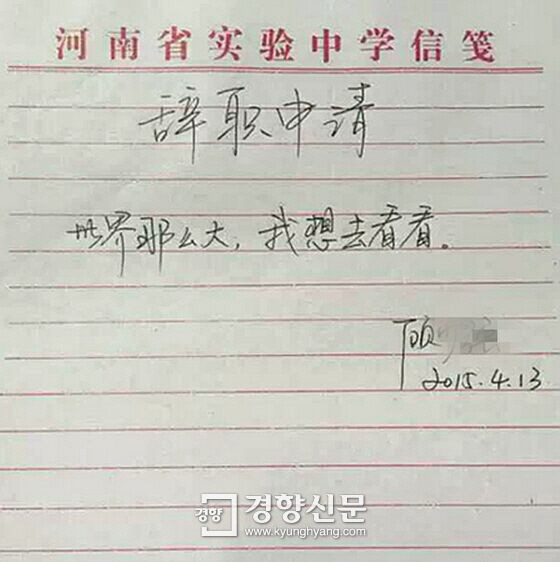 河南省实验中学信笺
辞职申请
世界那么大，我想去看看。
顾
2015.4.13
경향 경향신문
www.kyunghyang.com